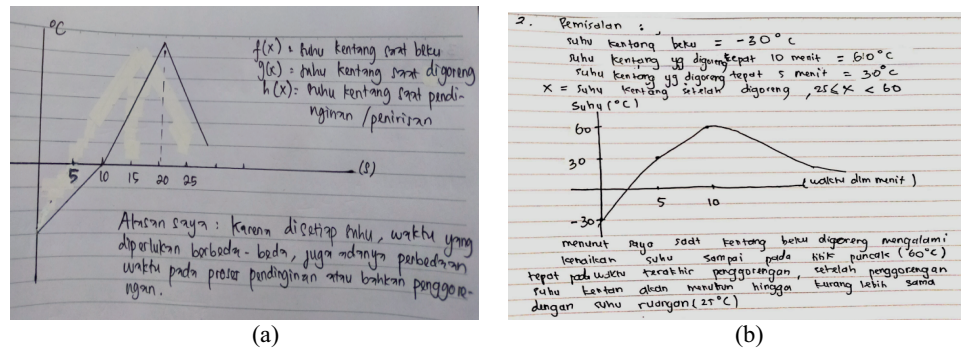 °C
f(x) : suhu kentang saat beku
g(x) : suhu kentang saat digoreng
h(x) : suhu kentang saat pendi-
nginan / penirisan
(s)
5 10 15 20 25
Alasan saya : Karena disetiap suhu, waktu yang
diperlukan berbeda-beda, juga adanya perbedaan
waktu pada proses pendinginan atau bahkan penggore-
ngan.
(a)
2. Pemisalan :
suhu kentang beku = -30°C
suhu kentang yg digoreng tepat 10 menit = 60°C
suhu kentang yg digoreng tepat 5 menit = 30°C
X = suhu kentang setelah digoreng , 25 ≤ X < 60
Suhu (°C)
60
30
(waktu dlm menit)
5 10
-30
menurut saya saat kentang beku digoreng mengalami
kenaikan suhu sampai pada titik puncak (60°C)
tepat pada waktu terakhir penggorengan, setelah penggorengan
suhu kentan akan menurun hingga kurang lebih sama
dengan suhu ruangan (25°C)
(b)